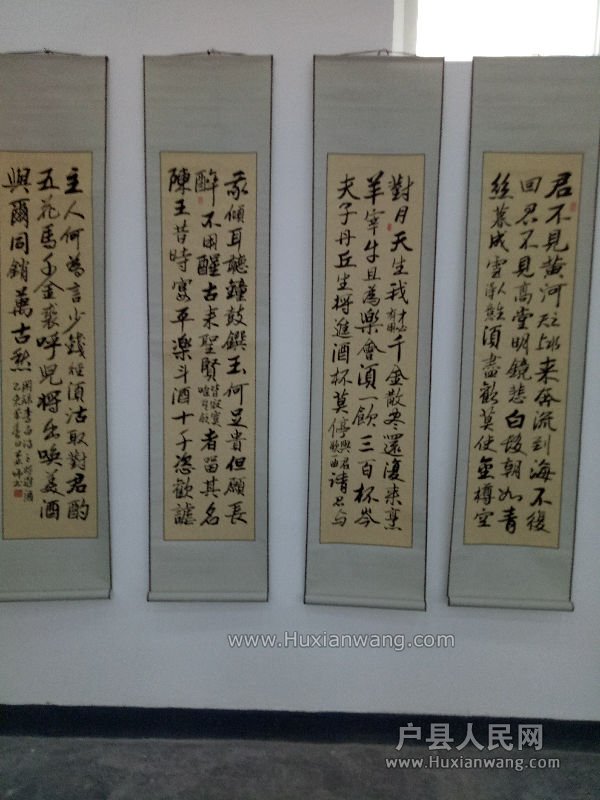 君不見黃河之水天上來奔流到海不復
回君不見高堂明鏡悲白髮朝如青
絲暮成雪人生得意須盡歡莫使金樽空
對月天生我才必有用千金散盡還復來烹
羊宰牛且為樂會須一飲三百杯岑
夫子丹丘生將進酒杯莫停與君歌一曲請君為
我傾耳聽鐘鼓饌玉何足貴但願長
醉不用醒古來聖賢皆寂寞唯有飲者留其名
陳王昔時宴平樂斗酒十千恣歡謔
主人何為言少錢徑須沽取對君酌
五花馬千金裘呼兒將出換美酒
與爾同銷萬古愁
李白詩之將進酒
www.Huxianwang.com
户县人民网
www.Huxianwang.com